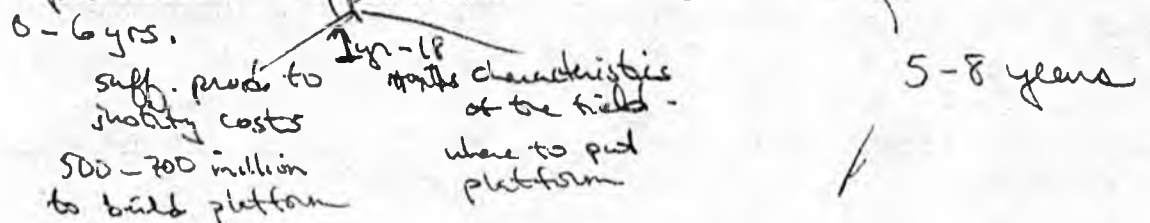 0-6 yrs.
1yr-18
months
suff. prod. to
justify costs
500-700 million
to build platform
characteristics
of the field -
where to put
platform
5-8 years